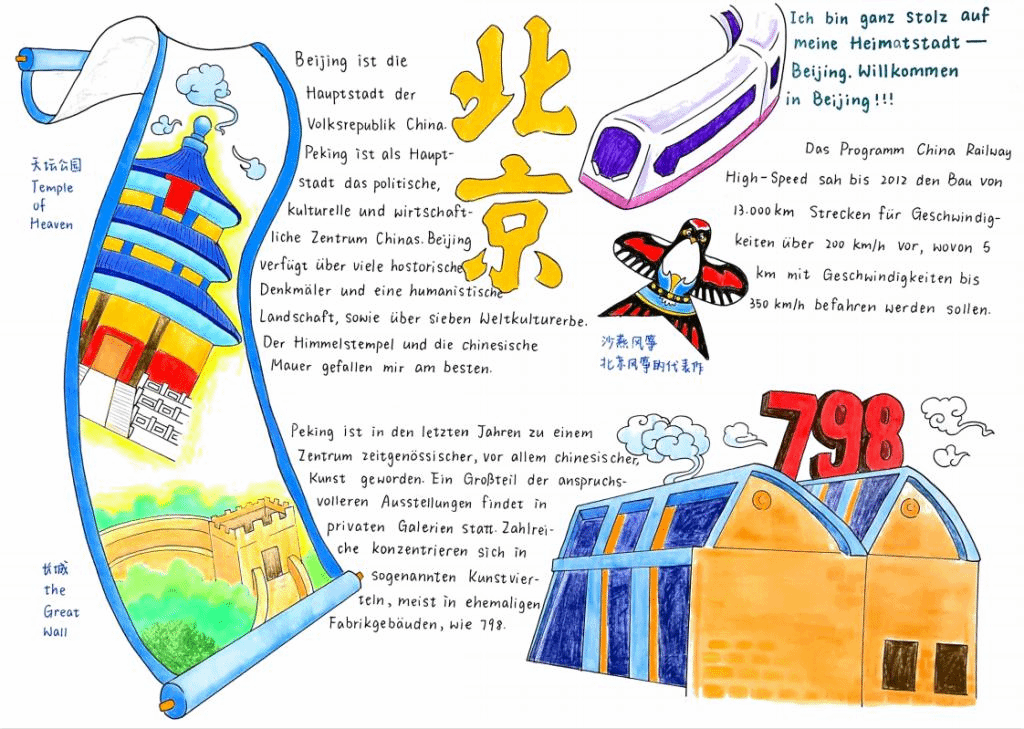 Beijing ist die
Hauptstadt der
Volksrepublik China.
Peking ist als Haupt-
stadt das politische,
kulturelle und wirtschaft-
liche Zentrum Chinas. Beijing
verfügt über viele hostorische
Denkmäler und eine humanistische
Landschaft, sowie über sieben Weltkulturerbe.
Der Himmelstempel und die chinesische
Mauer gefallen mir am besten.
北
京
Ich bin ganz stolz auf
meine Heimatstadt —
Beijing. Willkommen
in Beijing!!!
Das Programm China Railway
High-Speed sah bis 2012 den Bau von
13.000 km Strecken für Geschwindig-
keiten über 200 km/h vor, wovon 5
km mit Geschwindigkeiten bis
350 km/h befahren werden sollen.
沙燕风筝
北京风筝的代表作
天坛公园
Temple
of
Heaven
Peking ist in den letzten Jahren zu einem
Zentrum zeitgenössischer, vor allem chinesischer,
Kunst geworden. Ein Großteil der anspruchs-
volleren Ausstellungen findet in
privaten Galerien statt. Zahlrei-
che konzentrieren sich in
sogenannten Kunstvier-
teln, meist in ehemaligen
Fabrikgebäuden, wie 798.
798
长城
the
Great
Wall